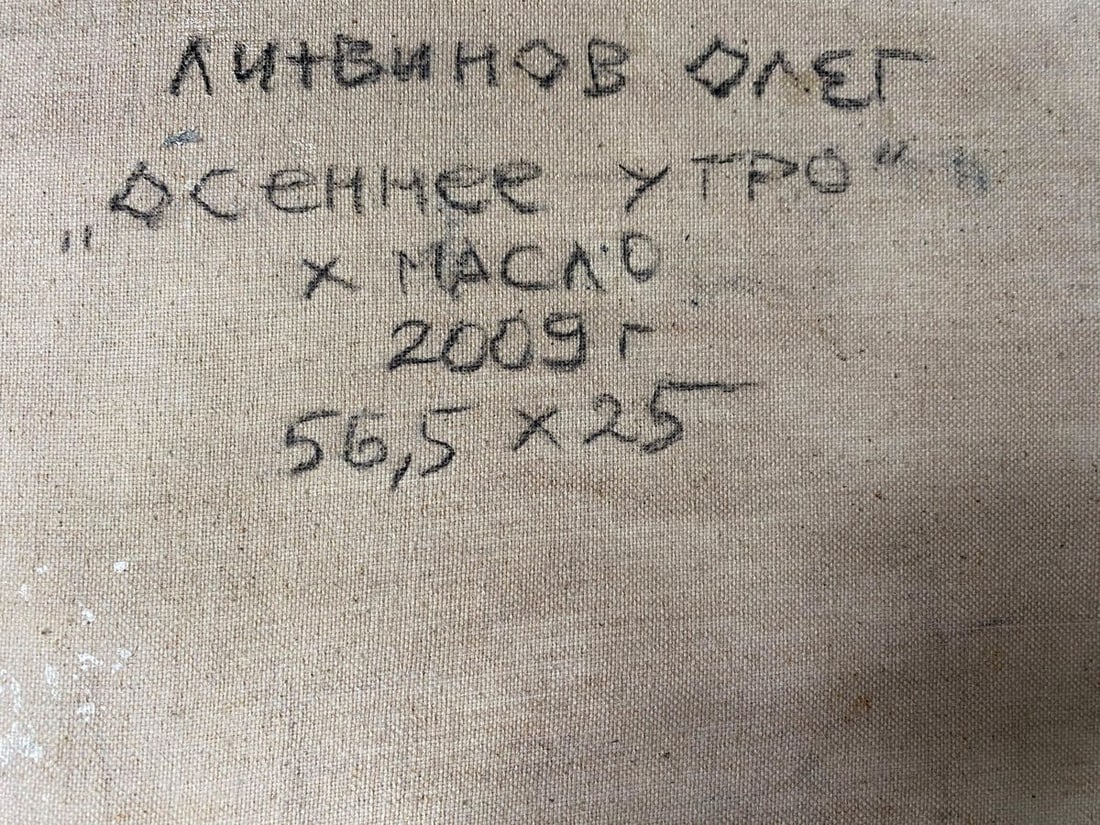 ЛИТВИНОВ ОЛЕГ
„Осеннее утро"
х МАСЛО
2009 г
56,5 х 25